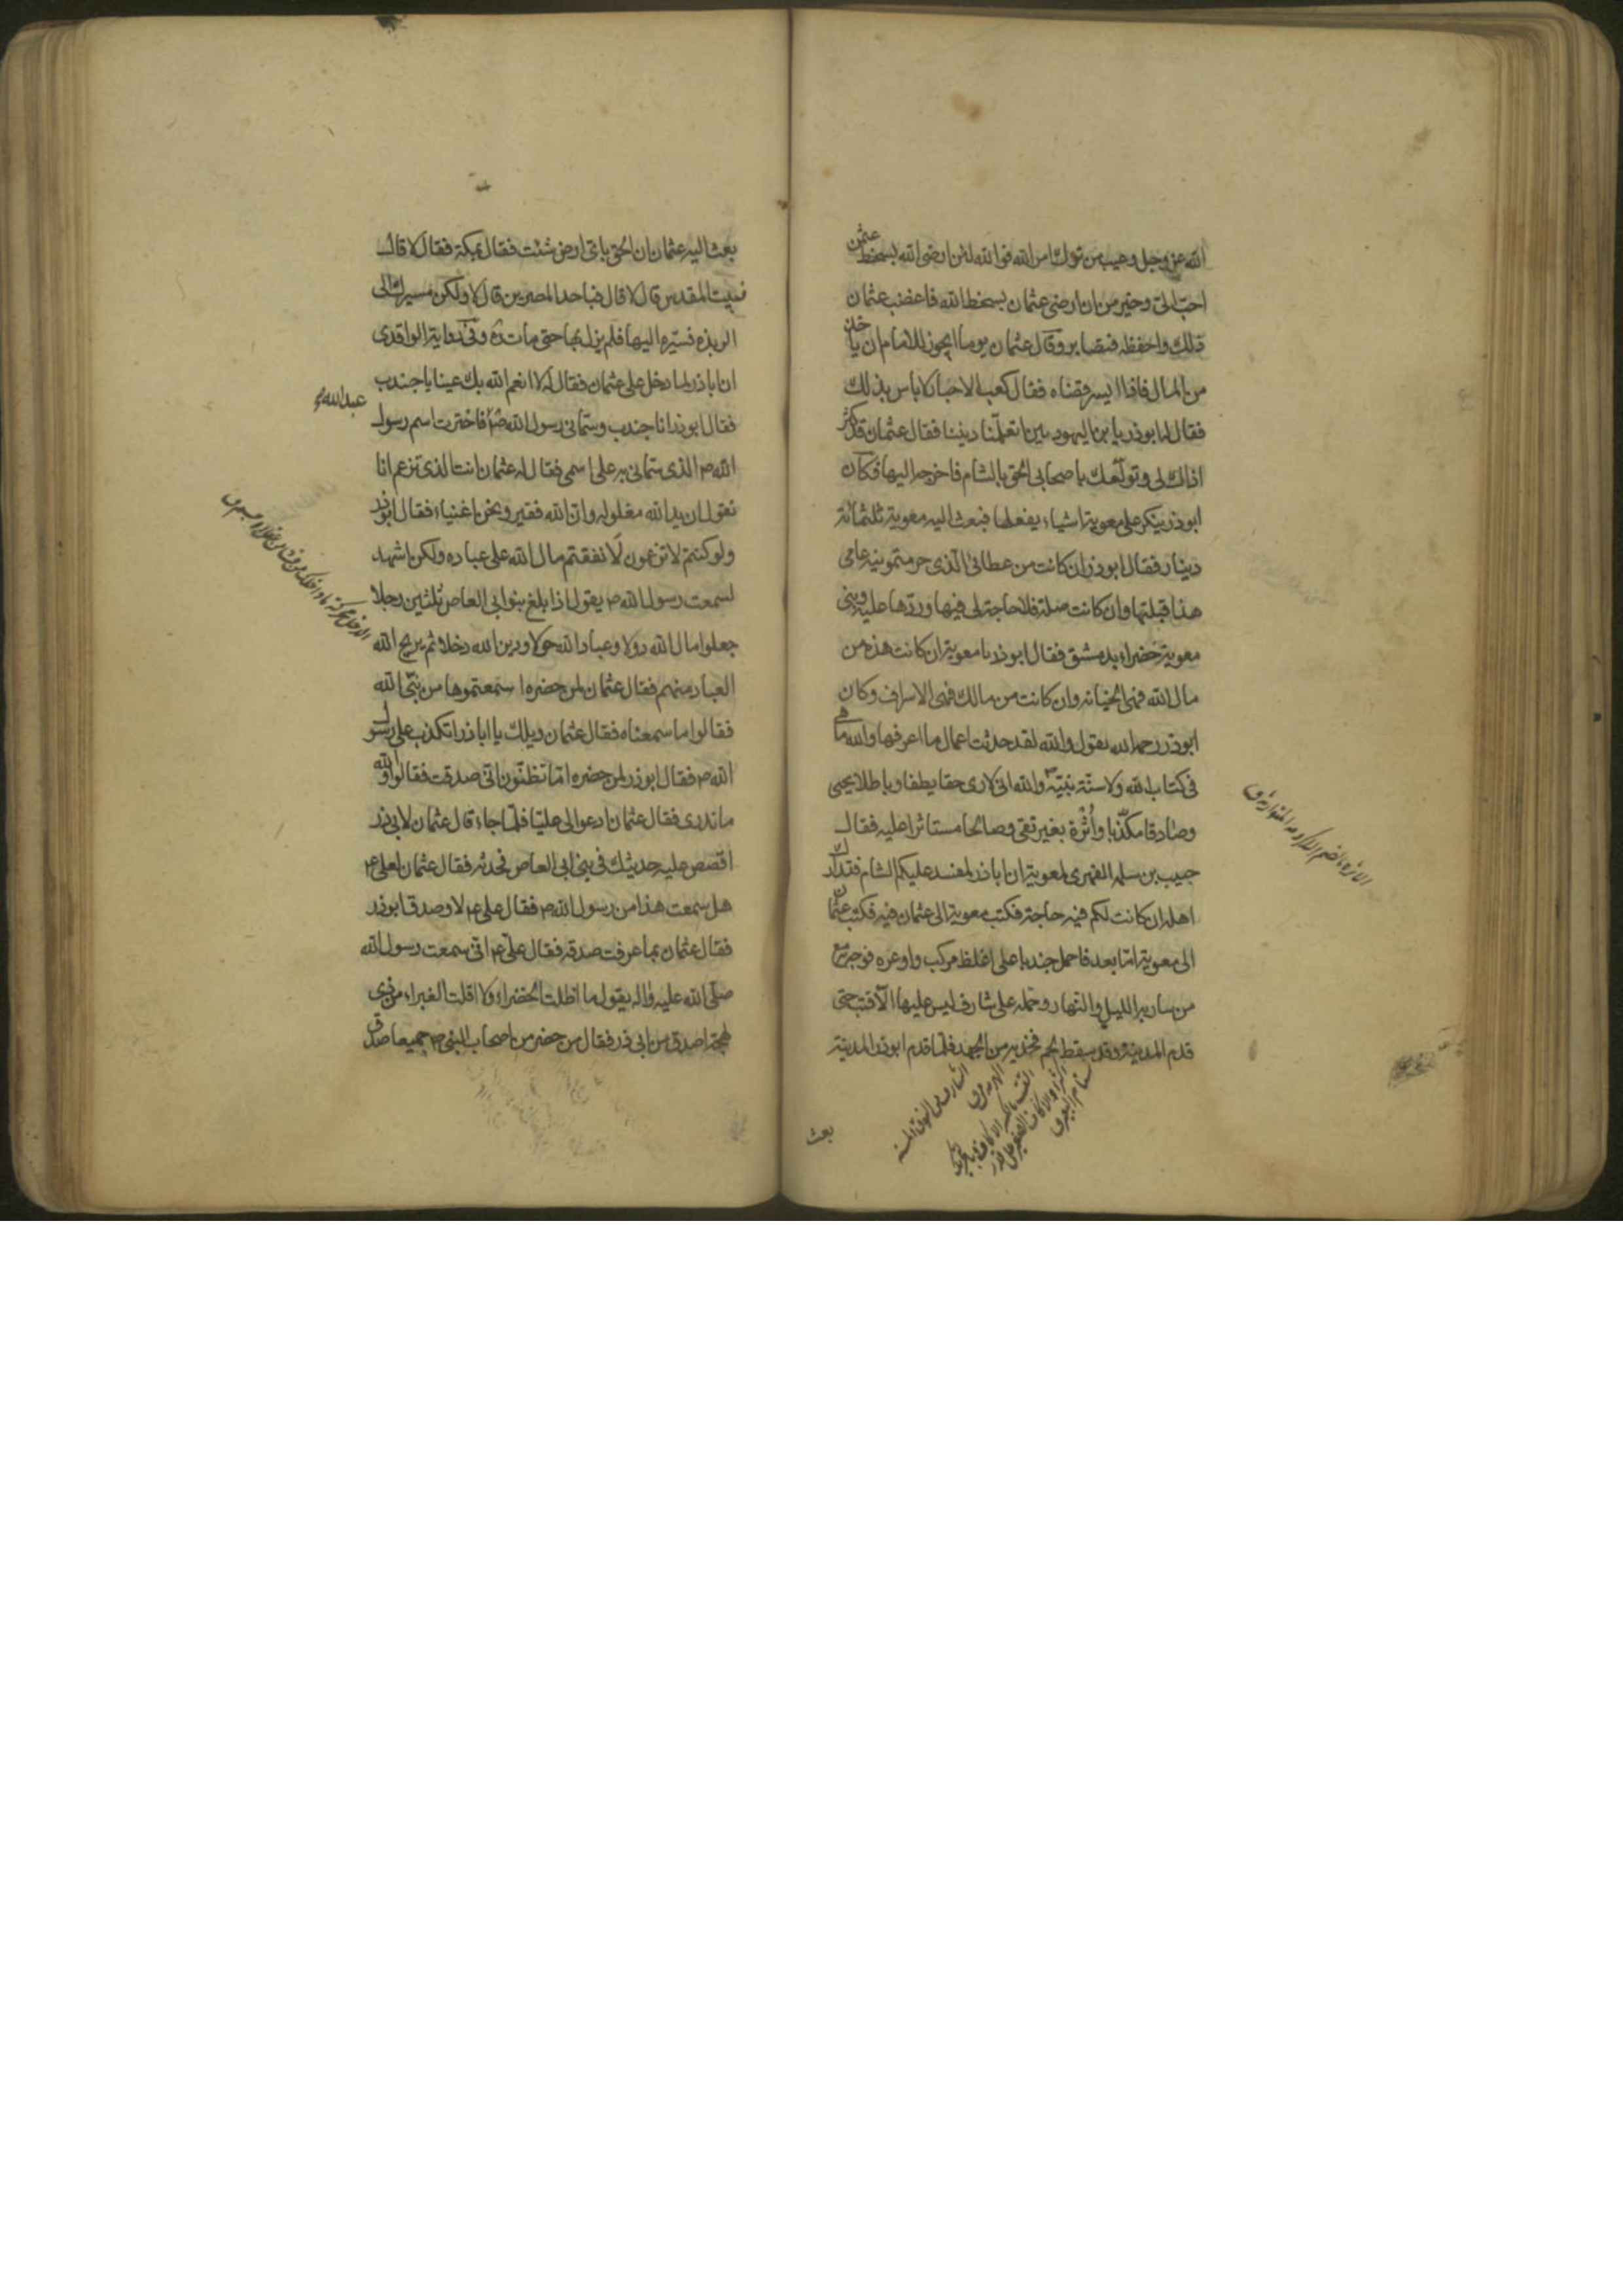 الله عز وجل وعيب من ترك امر الله فوالله لئن ارضى الله بسخط عثمن
احب الى وخير من ان ارضى عثمان بسخط الله فاغضب عثمان
ذلك واحفظه فتصابر وقال عثمان يوما ايجوز للامام ان ياخذ
من المال فاذا ايسر قضاه فقال كعب الاحبار لا باس بذلك
فقال له ابوذر يا بن اليهوديين اتعلمنا ديننا فقال عثمان قد كثر
اذاك لى وتولعك باصحابى الحق بالشام فاخرجه اليها فكان
ابوذر ينكر على معوية اشياء يفعلها فبعث اليه معوية ثلثمائة
دينار فقال ابوذر ان كانت من عطائى الذى حرمتمونيه عامى
هذا قبلتها وان كانت صلة فلا حاجة لى فيها وردها عليه وبنى
معوية خضراء بدمشق فقال ابوذر يا معوية ان كانت هذه من
مال الله فهى الخيانه وان كانت من مالك فهى الاسراف وكان
ابوذر رحمه الله يقول والله لقد حدثت اعمال ما اعرفها والله ما هى
فى كتاب الله ولا سنة نبيه ص والله انى لارى حقا يطفا وباطلا يحيى
وصادقا مكذبا واثرة بغير تقى وصالحا مستاثرا عليه فقال
حبيب بن سلمه الفهرى لمعوية ان اباذر لمفسد عليكم الشام فتدارك
اهله ان كانت لكم فيه حاجة فكتب معوية الى عثمان فيه فكتب عثمان
الى معوية اما بعد فاحمل جندبا على اغلظ مركب واوعره فوجه مع
من سار به الليل والنهار وحمله على شارف ليس عليها الا قتب حتى
قدم المدينة وقد سقط لحم فخذيه من الجهد فلما قدم ابوذر المدينة
بعث
بعث اليه عثمان ان الحق باى ارض شئت فقال بمكة فقال لا قال
فبيت المقدس قال لا قال فباحد المصرين قال لا ولكن مسيرك الى
الربذه فسيره اليها فلم يزل بها حتى مات ره وفى رواية الواقدى
ان اباذر لما دخل على عثمان فقال له لا انعم الله بك عينا يا جندب
فقال ابوذر انا جندب وسمانى رسول الله ص فاخترت اسم رسول
عبدالله
الله ص الذى سمانى به على اسمى فقال له عثمان انت الذى تزعم انا
نقول ان يد الله مغلوله وان الله فقير ونحن اغنياء فقال ابوذر
ولو كنتم لا تزعمون لانفقتم مال الله على عباده ولكن اشهد
لسمعت رسول الله ص يقول اذا بلغ بنو ابى العاص ثلثين رجلا
جعلوا مال الله دولا وعباد الله خولا ودين الله دخلا ثم يريح الله
العباد منهم فقال عثمان لمن حضره اسمعتموها من نبى الله
فقالوا ما سمعناه فقال عثمان ويلك يا اباذر اتكذب على رسول
الله ص فقال ابوذر لمن حضره اما تظنون انى صدقت فقالوا والله
ما ندرى فقال عثمان ادعوا لى عليا فلما جاء قال عثمان لابى ذر
اقصص عليه حديثك فى بنى ابى العاص فحدثه فقال عثمان لعلى ع
هل سمعت هذا من رسول الله ص فقال على ع لا وصدق ابوذر
فقال عثمان بما عرفت صدقه فقال على ع انى سمعت رسول الله
صلى الله عليه واله يقول ما اظلت الخضراء ولا اقلت الغبراء من ذى
لهجة اصدق من ابى ذر فقال من حضر من اصحاب النبى ص جميعا صدق